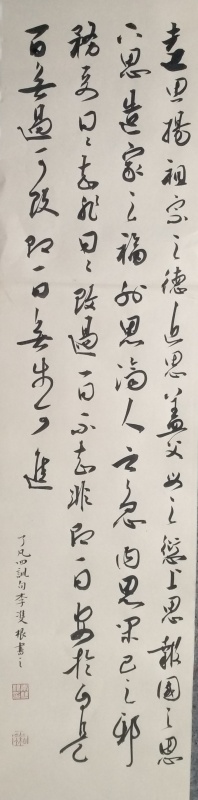 遠思揚祖宗之德近思蓋父母之愆上思報國之恩
下思造家之福外思濟人之急内思閑己之邪
務要日々知非日々改過一日不知非即一日安於自是
一日無過可改即一日無步可進
了凡四訓句李雙根書之